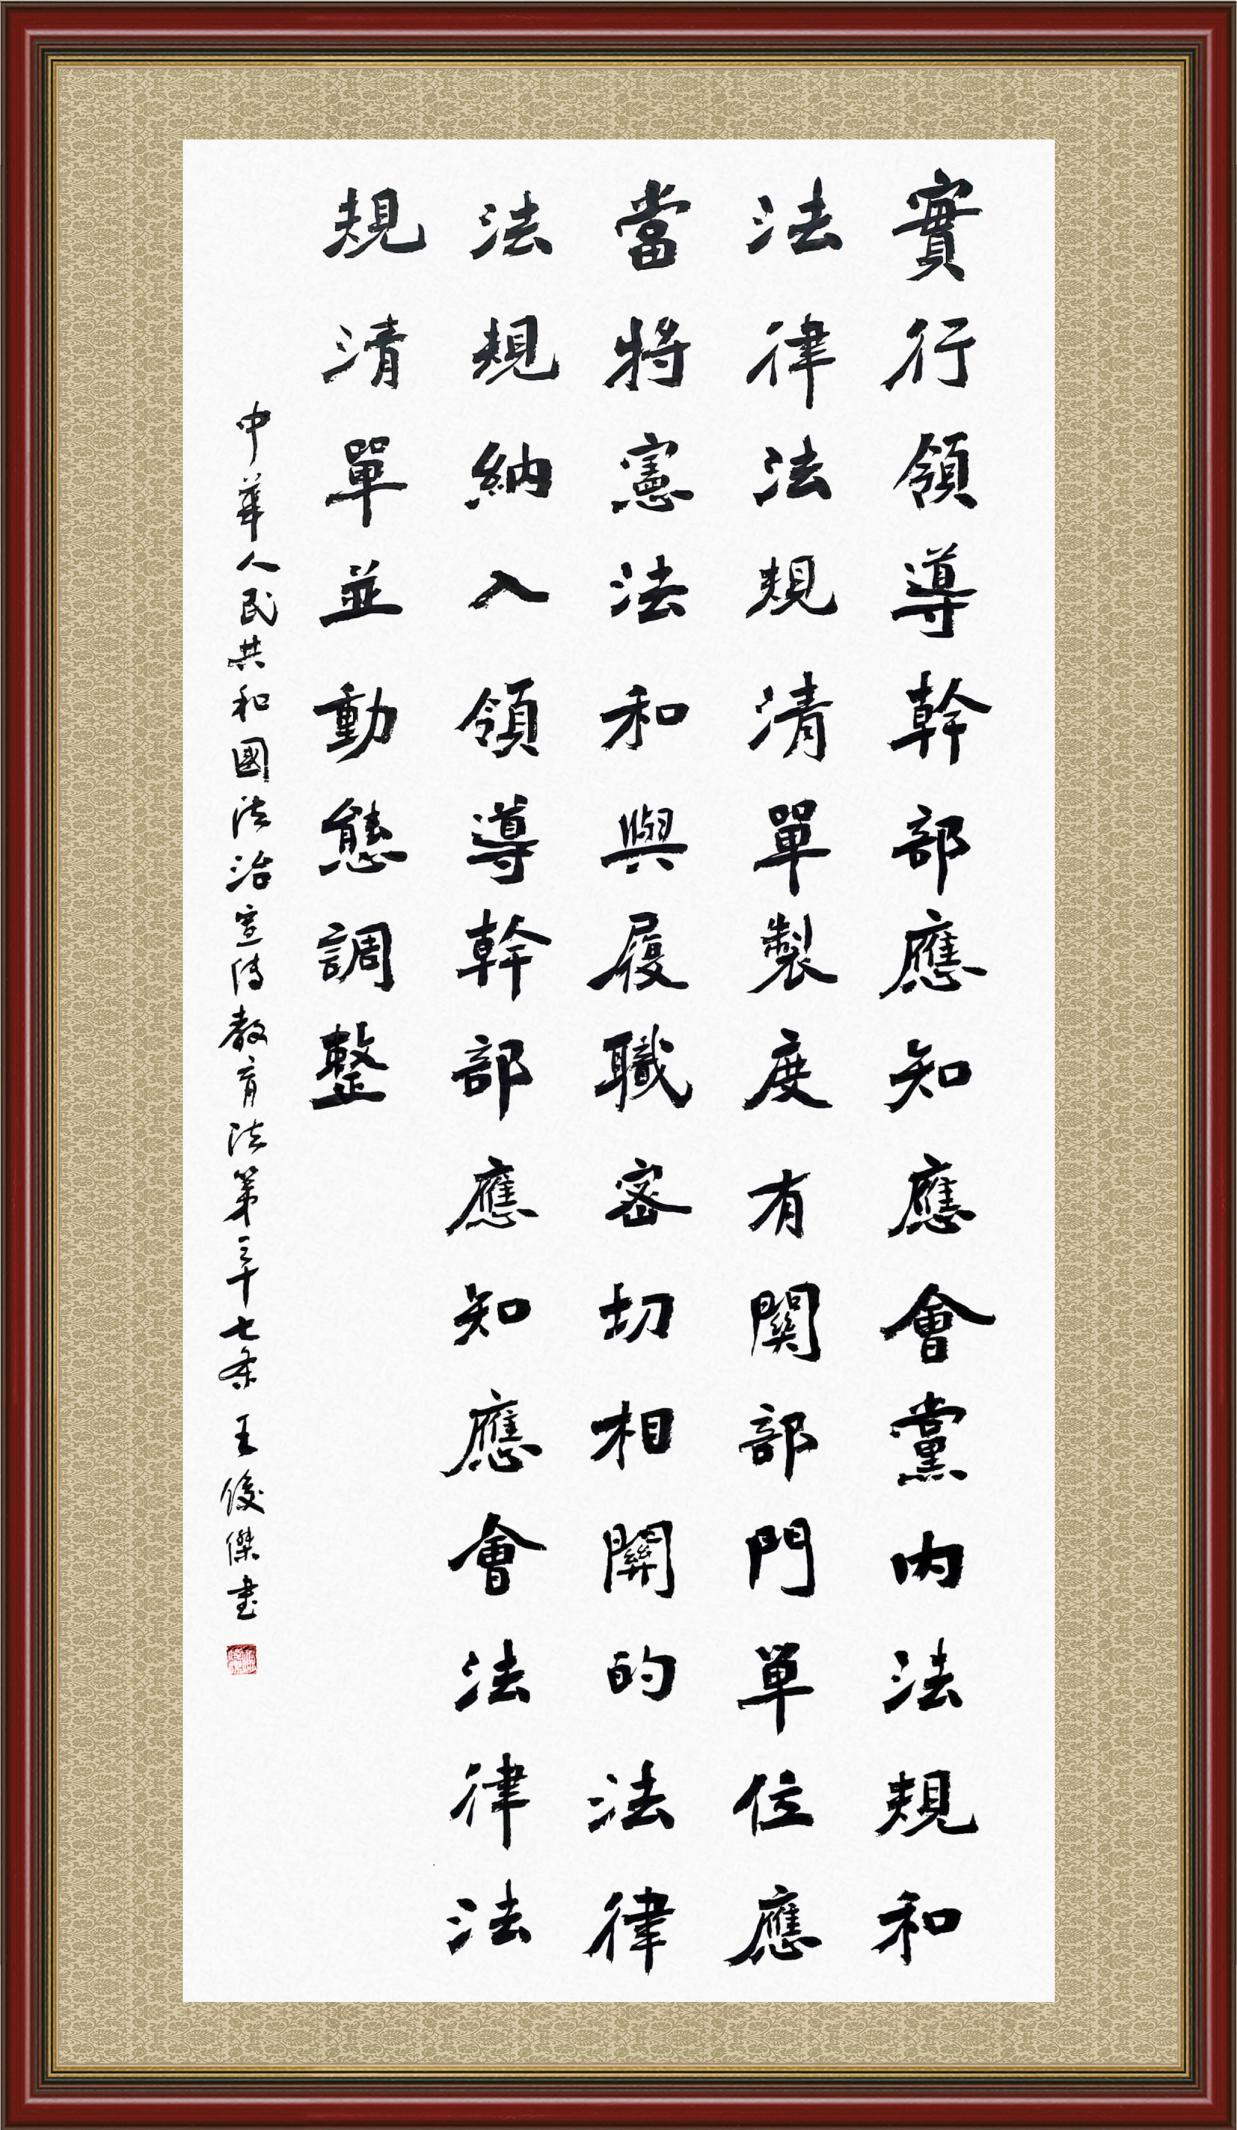 實行領導幹部應知應會黨内法規和
法律法規清單製度有關部門單位應
當將憲法和與履職密切相關的法律
法規納入領導幹部應知應會法律法
規清單並動態調整
中華人民共和國法治宣傳教育法第三十七条王俊傑書